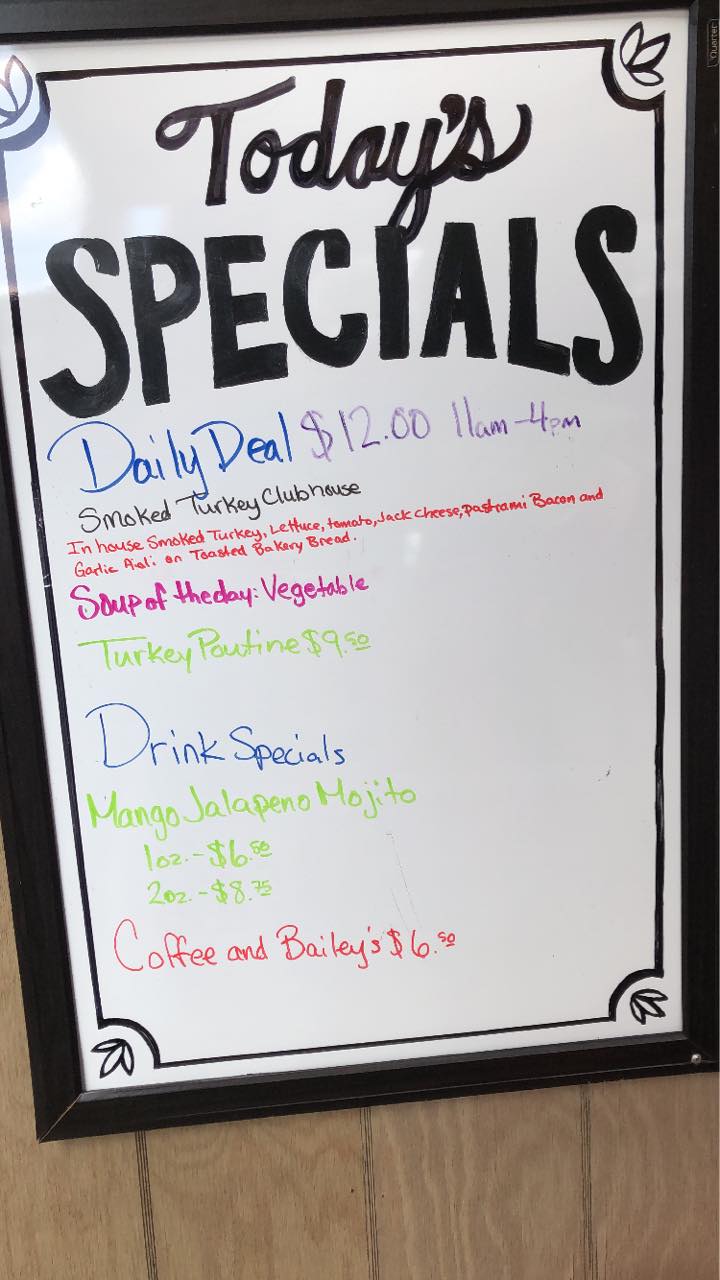 Today's
SPECIALS
Daily Deal $12.00 11am-4pm
Smoked Turkey Clubhouse
In house Smoked Turkey, Lettuce, tomato, Jack cheese, pastrami Bacon and
Garlic Aioli on Toasted Bakery Bread.
Soup of the day: Vegetable
Turkey Poutine $9.50
Drink Specials
Mango Jalapeno Mojito
1oz.-$6.50
2oz.-$8.75
Coffee and Bailey's $6.50
Quartet